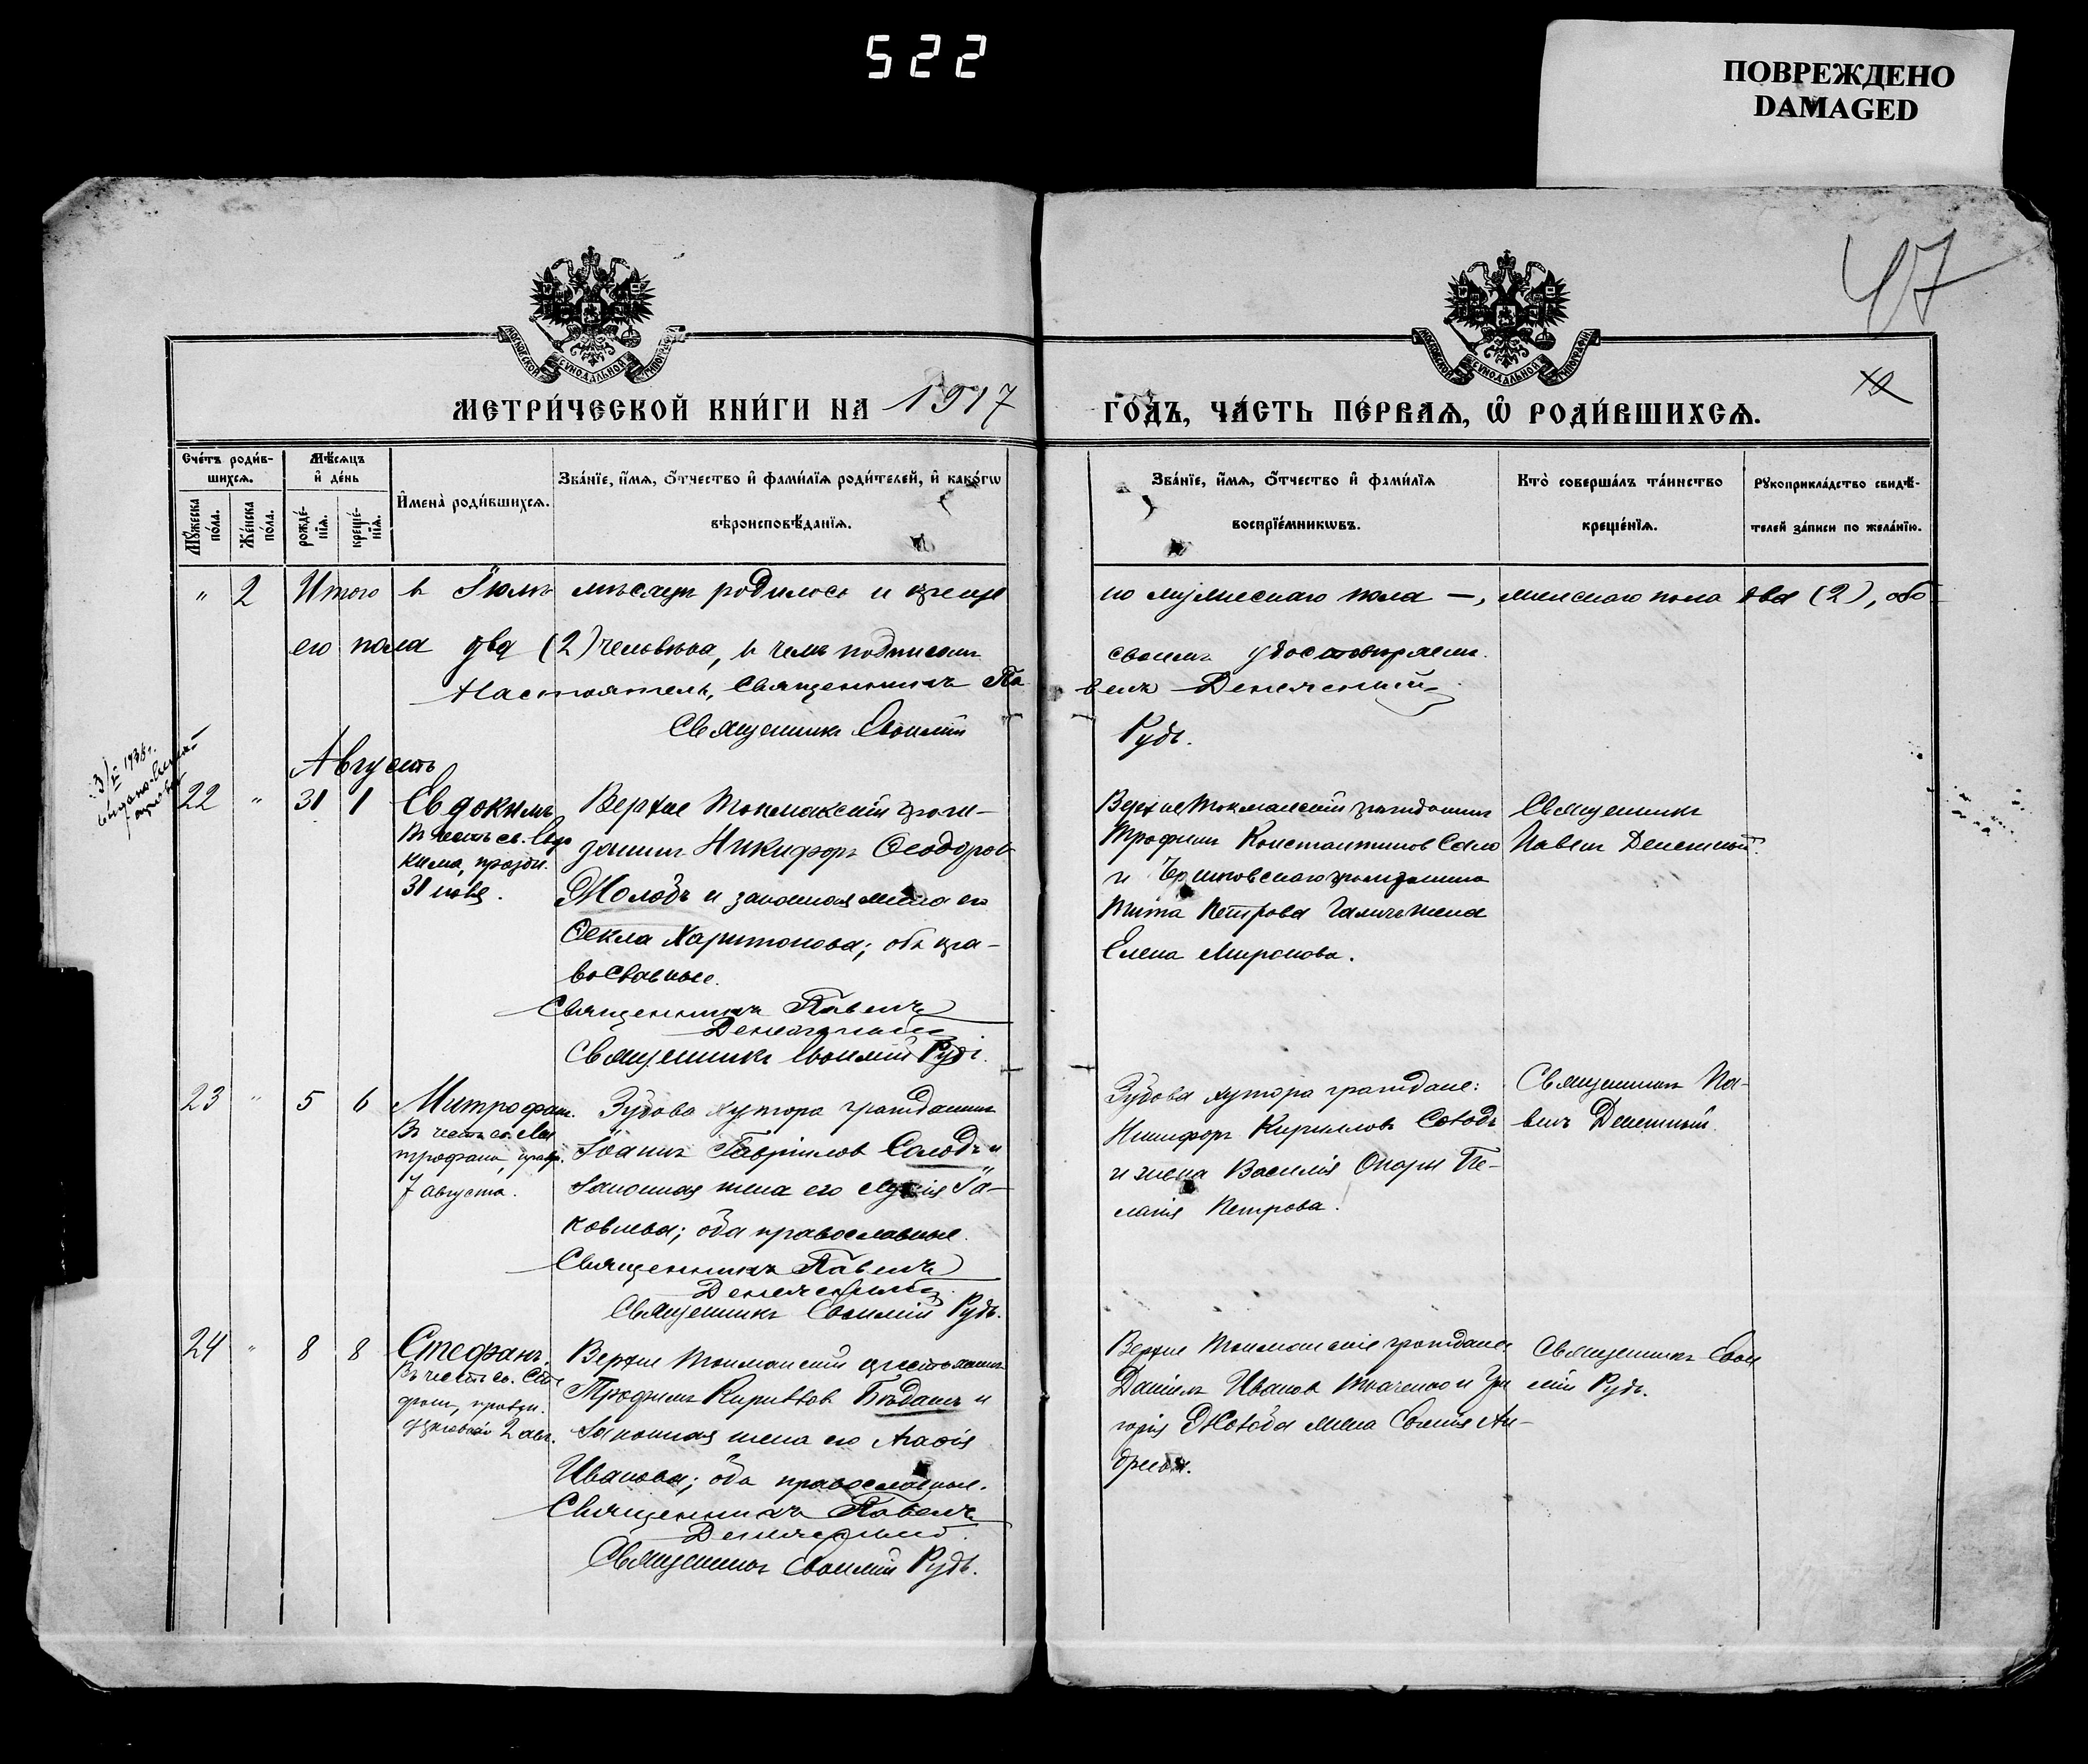 522
ПОВРЕЖДЕНО
DAMAGED
47
МОСКОВСКОЙ СѴНОДАЛЬНОЙ ТИПОГРАФІИ
МОСКОВСКОЙ СѴНОДАЛЬНОЙ ТИПОГРАФІИ
МЕТРИ́ЧЕСКОЙ КНИ́ГИ НА 1917
ГО́ДЪ, ЧА́СТЬ ПЕ́РВАѦ, Ѡ РОДИ́ВШИХСѦ.
Сче́тъ роди́вшихсѧ.
Мꙋ́жеска по́ла.
Же́нска по́ла.
Мѣ́сѧцъ и҆ де́нь
рожде́нїѧ.
креще́нїѧ.
И҆мена̀ роди́вшихсѧ.
Зва́нїе, и҆́мѧ, ѻ҆́тчество и҆ фами́лїѧ роди́телей, и҆ како́гѡ
вѣроисповѣ́данїѧ.
Зва́нїе, и҆́мѧ, ѻ҆́тчество и҆ фами́лїѧ
воспрїе́мникѡвъ.
Кто̀ соверша́лъ та́инство
креще́нїѧ.
Рꙋкоприкла́дство свидѣ́-
телей за́писи по жела́нїю.
" 2 Итого в Іюлѣ мѣсяцѣ родилось и креще
но мужескаго пола —, женскаго пола два (2), обо-
его пола два (2) человѣка, в чемъ подписомъ
своимъ удостовѣряемъ.
Настоятель, Священникъ Па
велъ Денежный
Священникъ Евѳимій
Рудь.
Августъ
22 " 31 1 Евдокимъ
Въ честь св. Евдо
кима, праздн.
31 іюля.
Верхне Токмакскій граж-
данинъ Никифоръ Ѳеодоров
Молодъ и законная жена его
Ѳекла Харитонова; оба пра-
вославные.
Священникъ Павелъ
Денежный
Священникъ Евѳимій Рудь.
Верхне Токмакскій гражданинъ
Трофимъ Константинов
и гражданина
Тита Петрова жена
Елена Миронова.
Священникъ
Павелъ Денежный.
23 " 5 6 Митрофанъ.
Въ честь св. Ми
трофана, праздн.
7 августа.
Зубова хутора гражданинъ
Іоаннъ Гавріилов Солодъ и
законная жена его Лукія Іа-
ковлева; оба православные.
Священникъ Павелъ
Денежный
Священникъ Евѳимій Рудь.
Зубова хутора граждане:
Никифоръ Кириллов Солодъ
и жена Василія Опары Пе-
лагія Петрова.
Священникъ Па-
велъ Денежный.
24 " 8 8 Стефанъ.
Въ честь св. Сте
фана, праздн.
2 авг.
Верхне Токмакскій крестьянинъ
Трофимъ Кириллов и
законная жена его Агаѳія
Иванова; оба православные.
Священникъ Павелъ
Денежный.
Священникъ Евѳимій Рудь.
Верхне Токмакскіе граждане
Даніилъ Иванов Ткаченко и Гри
горія жена Софія Ан-
дреева.
Священникъ Евѳи
мій Рудь.